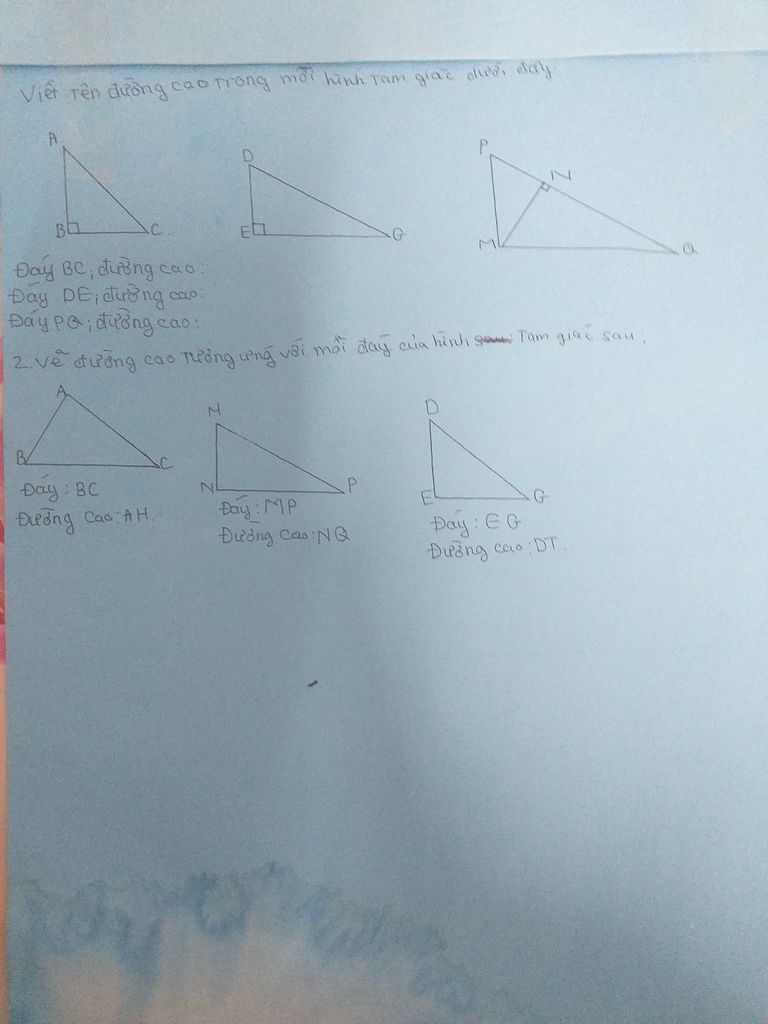 Viết tên đường cao trong mỗi hình tam giác dưới đây
A
B
C
D
E
G
P
N
M
Q
Đáy BC; đường cao:
Đáy DE; đường cao:
Đáy PQ; đường cao:
2. Vẽ đường cao tương ứng với mỗi đáy của hình sau: Tam giác sau:
A
B
C
Đáy: BC
Đường cao: AH.
M
N
P
Đáy: MP
Đường cao: NQ
D
E
G
Đáy: EG
Đường cao: DT.